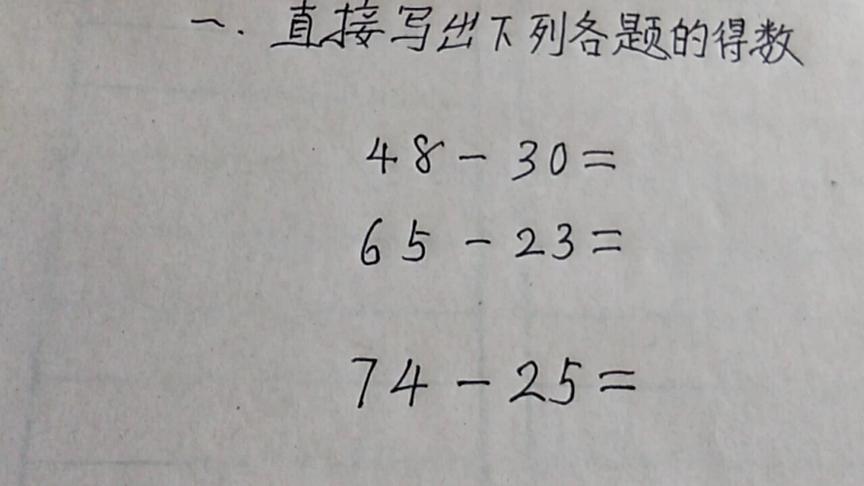 一.直接写出下列各题的得数
48-30=
65-23=
74-25=